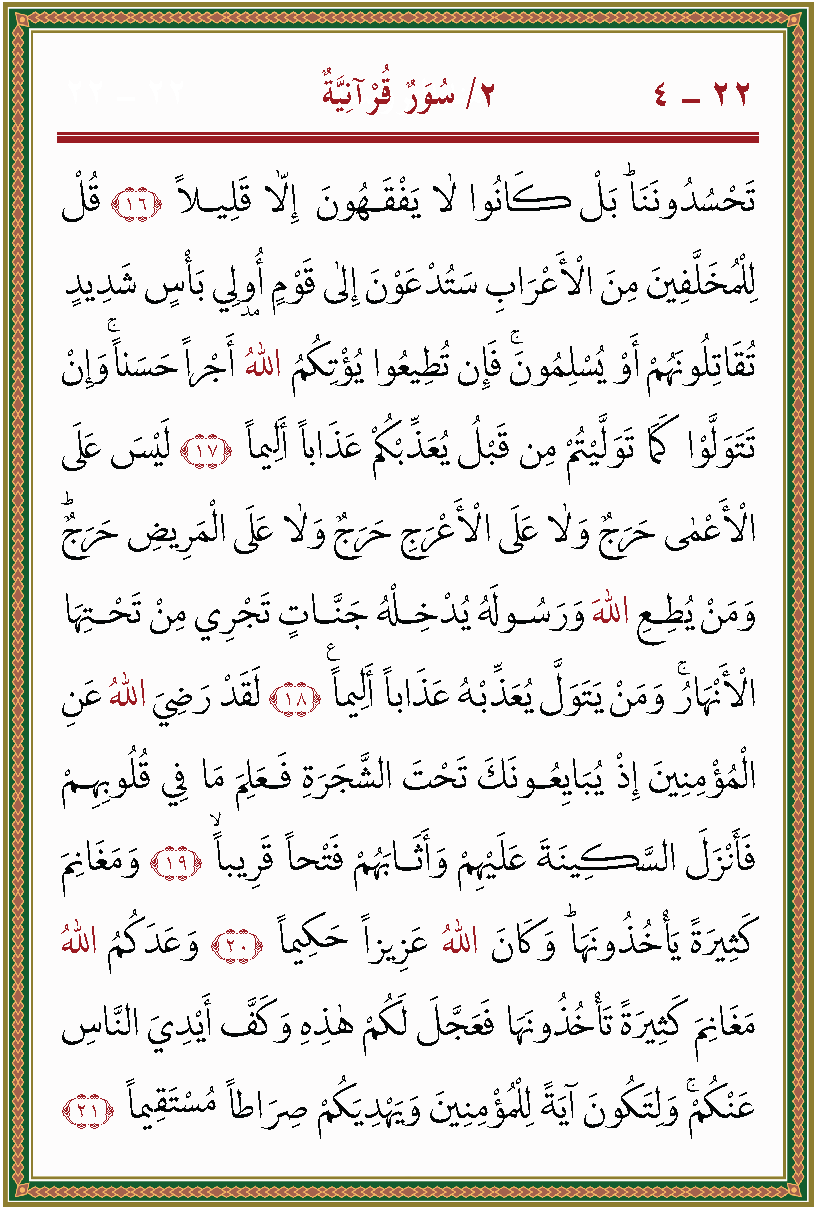 ٢٢ – ٤ ٢/ سُوَرٌ قُرْآنِيَّةٌ ٢٢ – ٢٢
تَحْسُدُونَنَاۜ بَلْ كَانُوا لَا يَفْقَهُونَ إِلَّا قَلِيلاً ﴿١٦﴾ قُلْ
لِلْمُخَلَّفِينَ مِنَ الْأَعْرَابِ سَتُدْعَوْنَ إِلٰى قَوْمٍ أُولِي بَأْسٍ شَدِيدٍ
تُقَاتِلُونَهُمْ أَوْ يُسْلِمُونَۚ فَإِن تُطِيعُوا يُؤْتِكُمُ اللهُ أَجْراً حَسَناًۚ وَإِنْ
تَتَوَلَّوْا كَمَا تَوَلَّيْتُمْ مِن قَبْلُ يُعَذِّبْكُمْ عَذَاباً أَلِيماً ﴿١٧﴾ لَيْسَ عَلَى
الْأَعْمٰى حَرَجٌ وَلَا عَلَى الْأَعْرَجِ حَرَجٌ وَلَا عَلَى الْمَرِيضِ حَرَجٌۜ
وَمَنْ يُطِعِ اللهَ وَرَسُولَهُ يُدْخِلْهُ جَنَّاتٍ تَجْرِي مِنْ تَحْتِهَا
الْأَنْهَارُۚ وَمَنْ يَتَوَلَّ يُعَذِّبْهُ عَذَاباً أَلِيماً ﴿١٨﴾ لَقَدْ رَضِيَ اللهُ عَنِ
الْمُؤْمِنِينَ إِذْ يُبَايِعُونَكَ تَحْتَ الشَّجَرَةِ فَعَلِمَ مَا فِي قُلُوبِهِمْ
فَأَنْزَلَ السَّكِينَةَ عَلَيْهِمْ وَأَثَابَهُمْ فَتْحاً قَرِيباًۙ ﴿١٩﴾ وَمَغَانِمَ
كَثِيرَةً يَأْخُذُونَهَاۜ وَكَانَ اللهُ عَزِيزاً حَكِيماً ﴿٢٠﴾ وَعَدَكُمُ اللهُ
مَغَانِمَ كَثِيرَةً تَأْخُذُونَهَا فَعَجَّلَ لَكُمْ هٰذِهِ وَكَفَّ أَيْدِيَ النَّاسِ
عَنْكُمْۚ وَلِتَكُونَ آيَةً لِلْمُؤْمِنِينَ وَيَهْدِيَكُمْ صِرَاطاً مُسْتَقِيماً ﴿٢١﴾